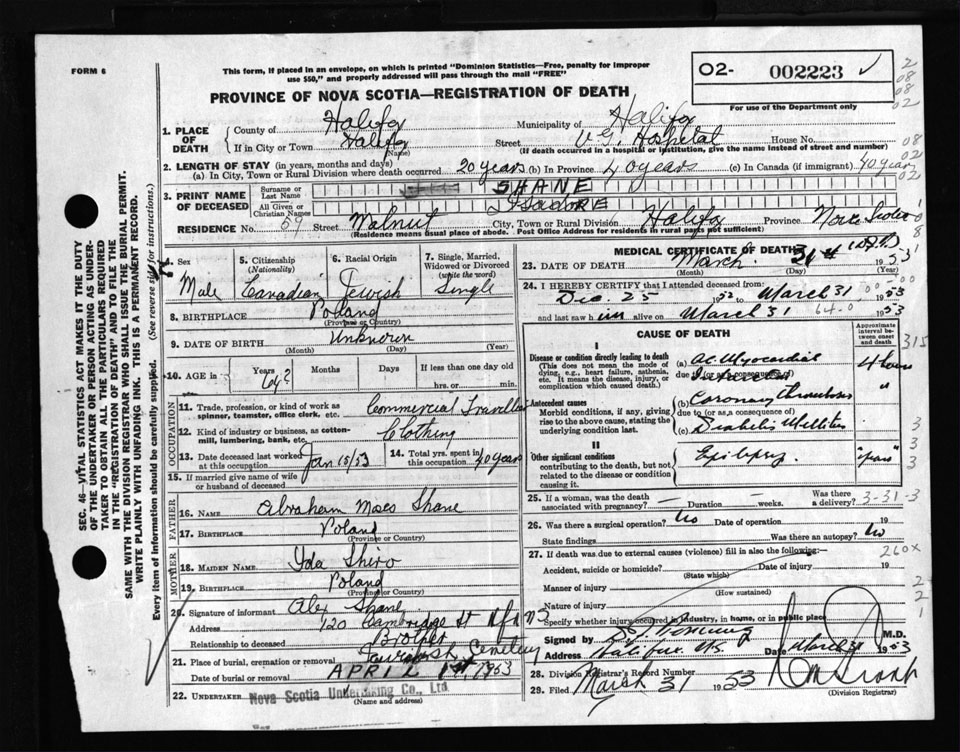 FORM 6
This form, if placed in an envelope, on which is printed "Dominion Statistics—Free, penalty for improper
use $50," and properly addressed will pass through the mail "FREE"
PROVINCE OF NOVA SCOTIA—REGISTRATION OF DEATH
02- 002223
For use of the Department only
2
08
08
02
SEC. 46—VITAL STATISTICS ACT MAKES IT THE DUTY
OF THE UNDERTAKER OR PERSON ACTING AS UNDER-
TAKER TO OBTAIN ALL THE PARTICULARS REQUIRED
IN THE "REGISTRATION OF DEATH" AND TO FILE THE
SAME WITH THE DIVISION REGISTRAR WHO SHALL ISSUE THE BURIAL PERMIT.
WRITE PLAINLY WITH UNFADING INK. THIS IS A PERMANENT RECORD.
Every item of Information should be carefully supplied. (See reverse side for instructions.)
1. PLACE OF DEATH
County of Halifax Municipality of Halifax
If in City or Town Halifax (Name) Street V.G. Hospital House No.
(If death occurred in a hospital or institution, give the name instead of street and number)
2. LENGTH OF STAY (in years, months and days)
(a) In City, Town or Rural Division where death occurred 20 years (b) In Province 40 years (c) In Canada (if immigrant) 40 years
3. PRINT NAME OF DECEASED
Surname or Last Name SHANE
All Given or Christian Names ISADORE
RESIDENCE No. 59 Street Walnut City, Town or Rural Division Halifax Province Nova Scotia
(Residence means usual place of abode. Post Office Address for residents in rural parts not sufficient)
4. Sex Male
5. Citizenship (Nationality) Canadian
6. Racial Origin Jewish
7. Single, Married, Widowed or Divorced (write the word) Single
8. BIRTHPLACE Poland
(Province or Country)
9. DATE OF BIRTH Unknown
(Month) (Day) (Year)
10. AGE in Years 64? Months Days If less than one day old
hrs. or min.
OCCUPATION
11. Trade, profession, or kind of work as spinner, teamster, office clerk, etc. Commercial Traveller
12. Kind of industry or business, as cotton-mill, lumbering, bank, etc. Clothing
13. Date deceased last worked at this occupation Jan 15/53
14. Total yrs. spent in this occupation 40 years
15. If married give name of wife or husband of deceased
FATHER
16. NAME Abraham Moses Shane
17. BIRTHPLACE Poland
(Province or Country)
MOTHER
18. MAIDEN NAME Ida Shiro
19. BIRTHPLACE Poland
(Province or Country)
20. Signature of informant Alex Shane
Address 120 Cambridge St Hfx NS
Relationship to deceased Brother
21. Place of burial, cremation or removal Jewish Cemetery
Date of burial or removal APRIL 1st 1953
22. UNDERTAKER Nova Scotia Undertaking Co., Ltd
(Name and address)
MEDICAL CERTIFICATE OF DEATH
23. DATE OF DEATH March 31st 1953
(Month) (Day) (Year)
24. I HEREBY CERTIFY that I attended deceased from:
Dec. 25 1952 to March 31 1953
and last saw him alive on March 31 1953
64.0
CAUSE OF DEATH
Approximate interval between onset and death
I
Disease or condition directly leading to death
(This does not mean the mode of dying, e.g., heart failure, asthenia, etc. It means the disease, injury, or complication which caused death.)
(a) Ac. Myocardial Infarction 4 hours
due to
Antecedent causes
Morbid conditions, if any, giving rise to the above cause, stating the underlying condition last.
(b) Coronary Thrombosis "
due to (or as a consequence of)
(c) Diabetes Mellitus
II
Other significant conditions
contributing to the death, but not related to the disease or condition causing it.
Epilepsy. "years"
25. If a woman, was the death associated with pregnancy? Duration weeks. Was there a delivery?
3-31-3
26. Was there a surgical operation? No Date of operation 19
State findings Was there an autopsy? No
27. If death was due to external causes (violence) fill in also the following:—
260x
Accident, suicide or homicide? Date of injury 19
(State which)
Manner of injury
(How sustained)
Nature of injury
Specify whether injury occurred in industry, in home, or in public place
Signed by M.D.
Address Halifax NS Date March 31 1953
28. Division Registrar's Record Number
29. Filed March 31 1953
(Division Registrar)